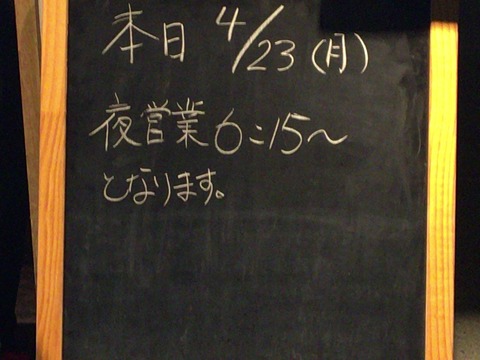 本日 4/23(月)
夜営業6:15〜
となります。